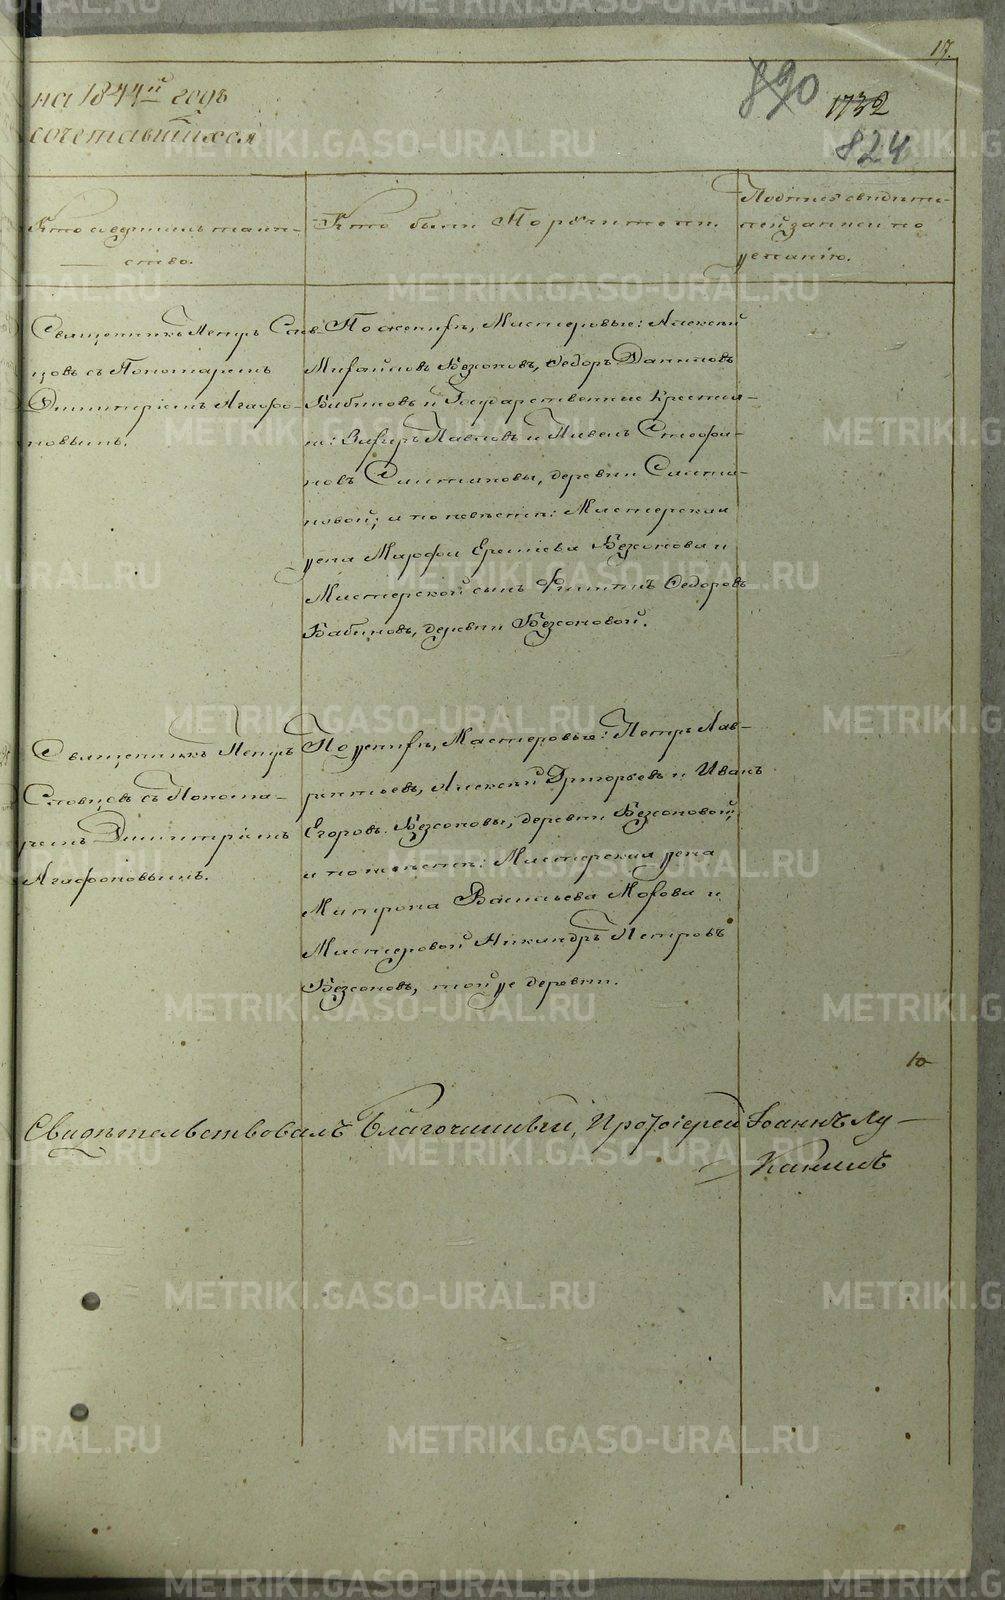 17.
на 1844й годъ
сочетавшихся
890
1732
824
Кто совершилъ таин-
ство.
Кто были Поручители.
Подписъ свидѣте-
лей записи по
желанію.
Священникъ Петръ Слов-
цовъ съ Пономаремъ
Димитріемъ Агафо-
новымъ.
По женихѣ, Мастеровые: Алексѣй
Михайловъ Безсоновъ, Ѳедоръ Даниловъ
Бабиновъ и Государственные Крестья-
не: Павловъ и Павелъ Стефа-
новъ деревни
новой; а по невѣстѣ: Мастерская
жена Марфа Безсонова и
Мастерской сынъ Филиппъ Ѳедоровъ
Бабиновъ, деревни Безсоновой.
Священникъ Петръ
Словцовъ съ Понома-
ремъ Димитріемъ
Агафоновымъ.
По женихѣ, Мастеровые: Петръ Лав-
рентьевъ, Алексѣй Григорьевъ и Иванъ
Егоровъ Безсоновы, деревни Безсоновой;
а по невѣстѣ: Мастерская жена
Матрона Васильева Мохова и
Мастеровой Никандръ Петровъ
Безсоновъ, той же деревни.
Свидѣтельствовалъ Благочинный, Протоіерей Іоаннъ Лу-
канинъ
METRIKI.GASO-URAL.RU